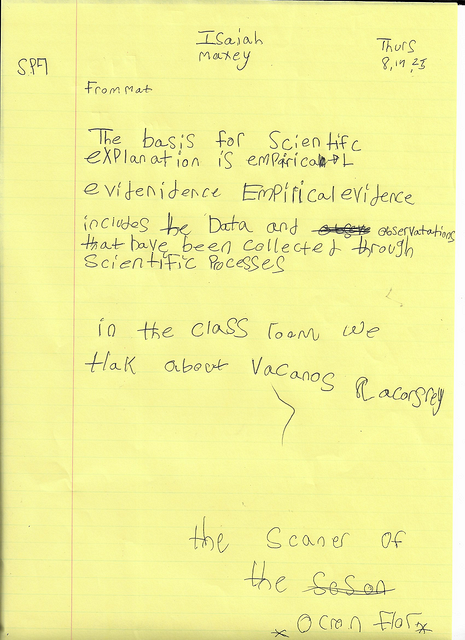 Isaiah
maxey
Thurs
8, 17, 23
SP7
From mat
The basis for Scientifc
exPlanation is emPirical L
evidenidence EmPirical evidence
includes the Data and observatations
that have been collected through
Scientific Processes
in the class room we
tlak about Vacanos
the Scaner of
the SoSon
* Ocron flor *